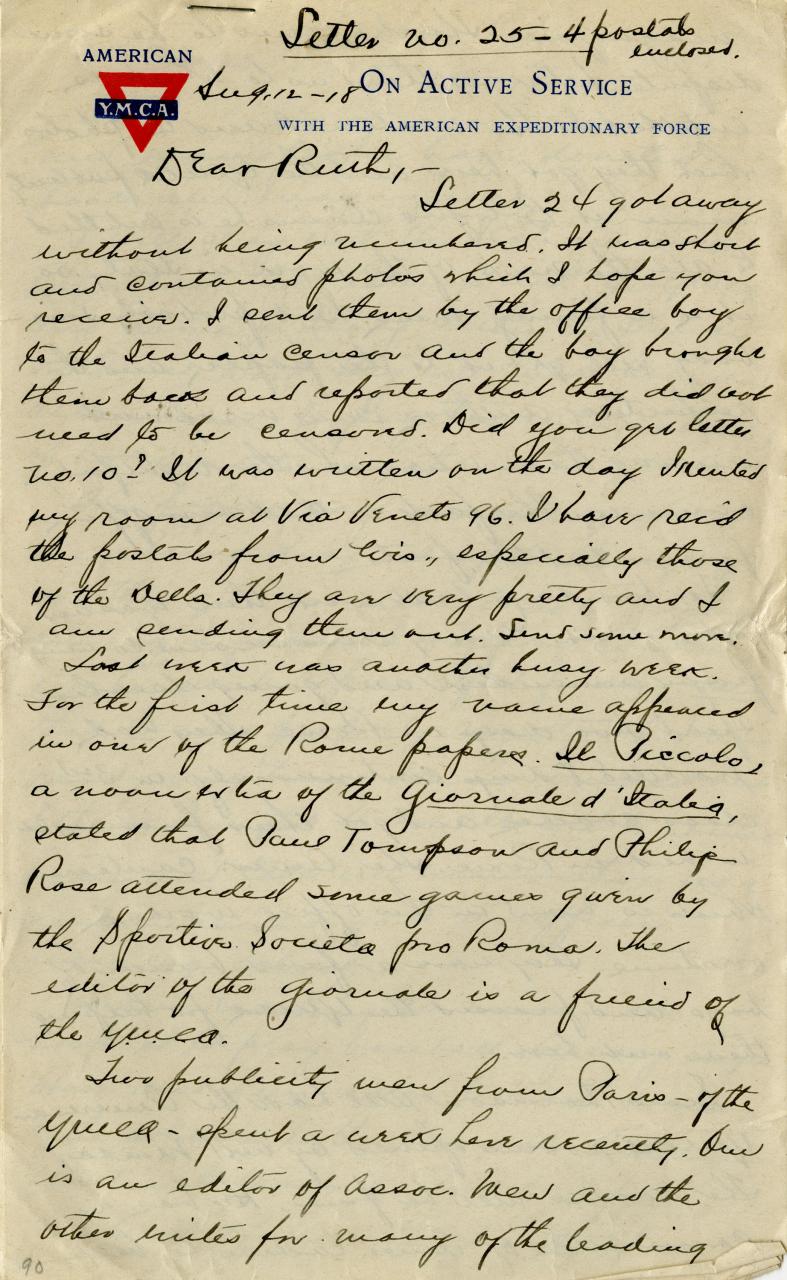 Letter no. 25 - 4 postals
enclosed.
AMERICAN
Y.M.C.A.
Aug. 12 - 18
ON ACTIVE SERVICE
WITH THE AMERICAN EXPEDITIONARY FORCE
Dear Ruth, -
Letter 24 got away
without being numbered. It was short
and contained photos which I hope you
receive. I sent them by the office boy
to the Italian censor and the boy brought
them back and reported that they did not
need to be censored. Did you get letter
no. 10? It was written on the day I rented
my room at Via Veneto 96. I have rec'd
the postals from Wis., especially those
of the Dells. They are very pretty and I
am sending them out. Send some more.
Last week was another busy week.
For the first time my name appeared
in one of the Rome papers. Il Piccolo,
a noon extra of the Giornale d'Italia,
stated that Paul Tompson and Philip
Rose attended some games given by
the Sportive Societa pro Roma. The
editor of the Giornale is a friend of
the YMCA.
Two publicity men from Paris - of the
YMCA - spent a week here recently. One
is an editor of Assoc. Men and the
other writes for many of the leading
90